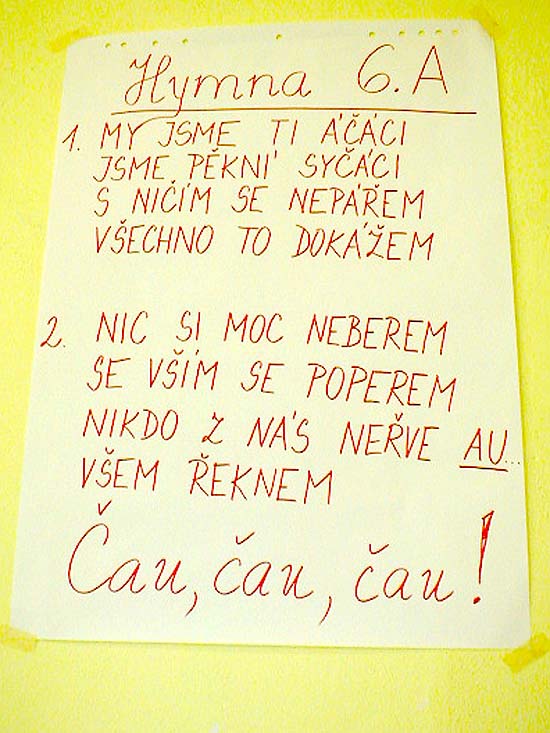 Hymna 6.A
1. MY JSME TI ÁČÁCI
JSME PĚKNÍ SYČÁCI
S NIČÍM SE NEPÁŘEM
VŠECHNO TO DOKÁŽEM
2. NIC SI MOC NEBEREM
SE VŠÍM SE POPEREM
NIKDO Z NÁS NEŘVE AU...
VŠEM ŘEKNEM
Čau, čau, čau!